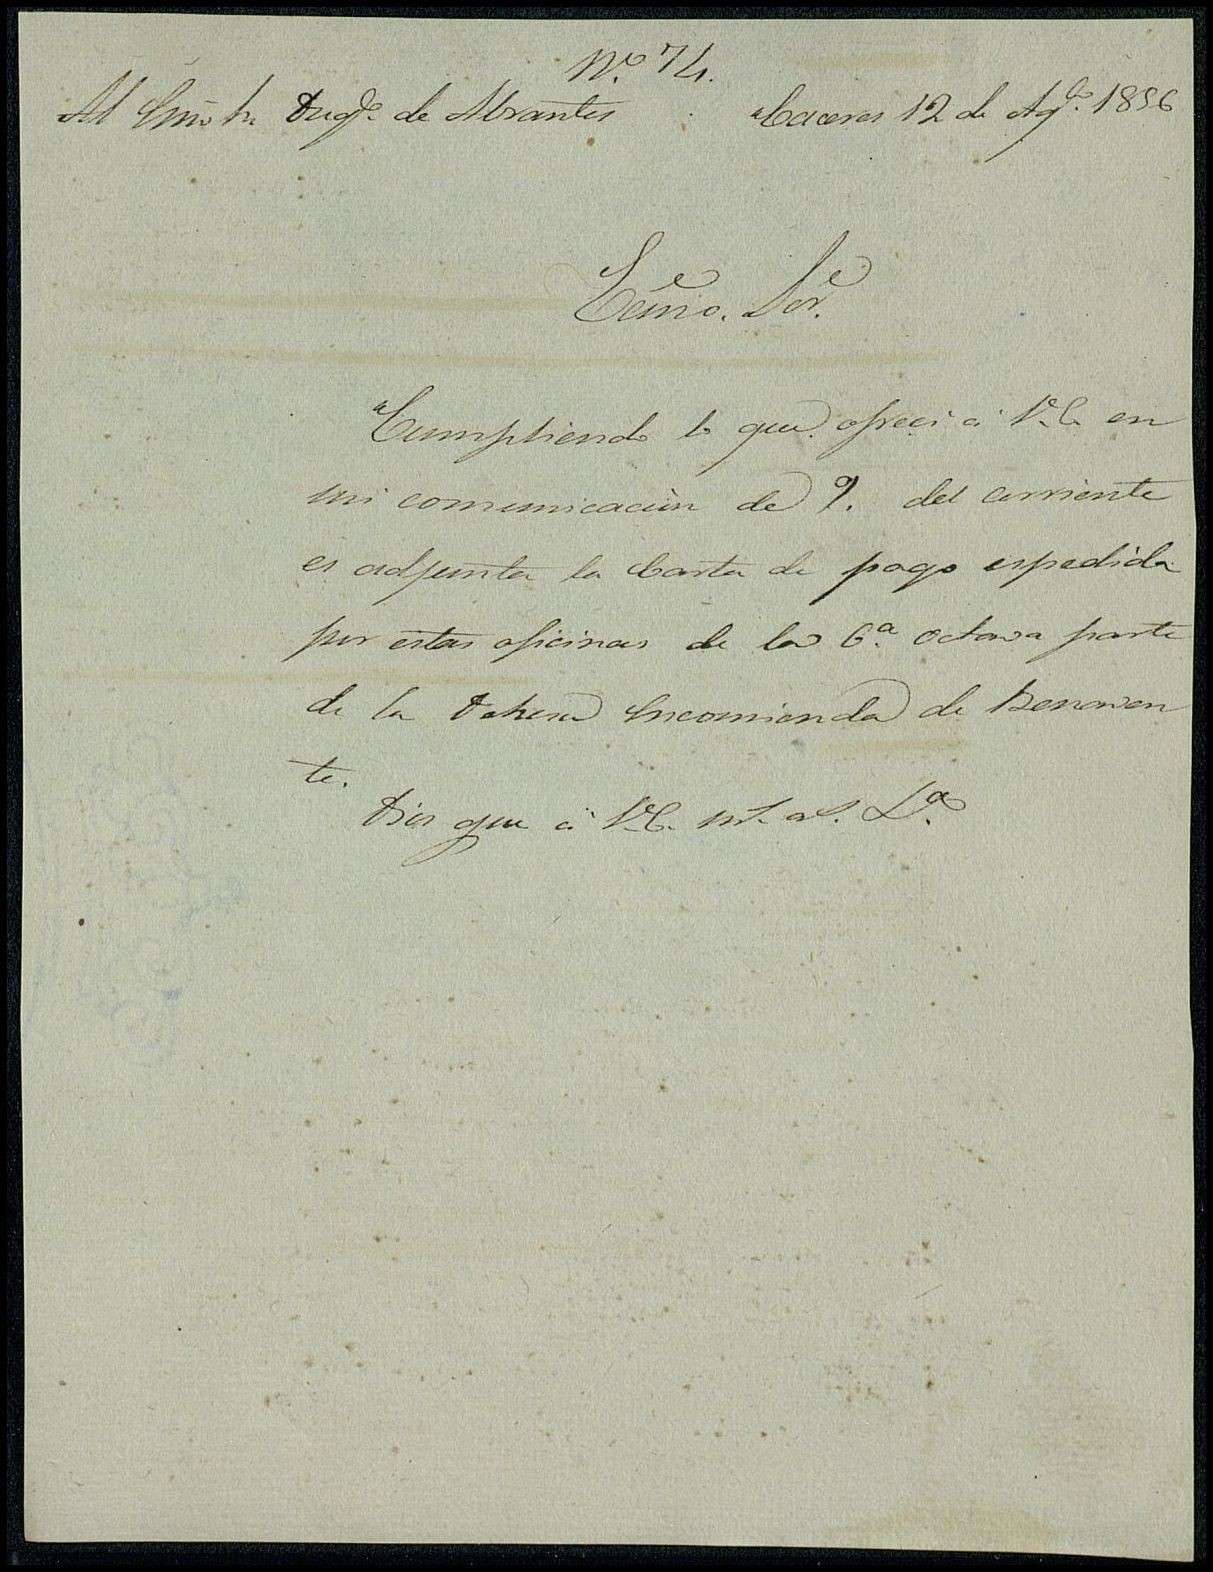 N.º 74.
Al Exmo Sr Duqe de Abrantes . Caceres 12 de Agto. 1856
Ecmo. Sor.
Cumpliendo lo que ofreci á V.E. en
mi comunicación de 9. del corriente
es adjunta la Carta de pago espedida
por estas oficinas de la 6.ª octava parte
de la Dehesa Encomienda de Benaven
te.
Dios gue á V.E. ms. as.